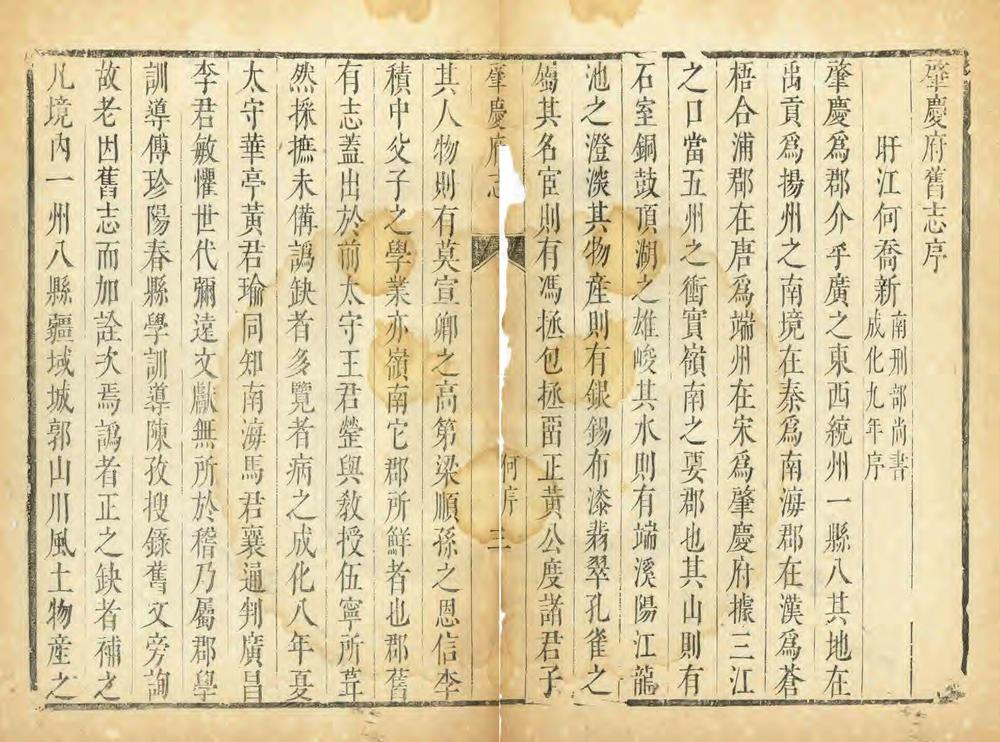 肇慶府舊志序
盱江何喬新南刑部尚書
成化九年序
肇慶爲郡介乎廣之東西統州一縣八其地在
禹貢爲揚州之南境在秦爲南海郡在漢爲蒼
梧合浦郡在唐爲端州在宋爲肇慶府據三江
之口當五州之衝實嶺南之要郡也其山則有
石室銅鼓頂湖之雄峻其水則有端溪陽江龍
池之澄淡其物產則有銀錫布漆翡翠孔雀之
屬其名宦則有馮拯包拯畱正黃公度諸君子
肇慶府志
何序
三
其人物則有莫宣卿之高第梁順孫之恩信李
積中父子之學業亦嶺南它郡所鮮者也郡舊
有志蓋出於前太守王君瑩與敎授伍寧所葺
然採摭未備譌缺者多覽者病之成化八年夏
太守華亭黃君瑜同知南海馬君襄通判廣昌
李君敏懼世代彌遠文獻無所於稽乃屬郡學
訓導傳珍陽春縣學訓導陳孜搜錄舊文旁詢
故老因舊志而加詮次焉譌者正之缺者補之
凡境內一州八縣疆域城郭山川風土物產之